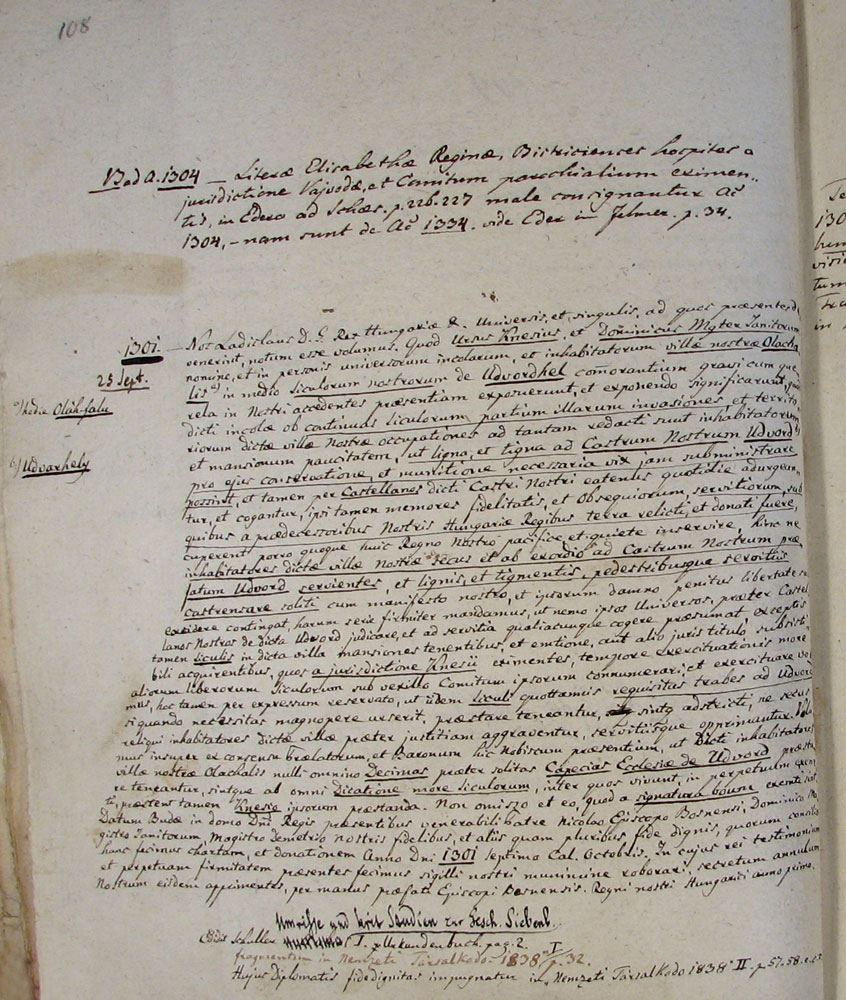 108
13 ad A. 1304 — Literæ Elisabethæ Reginæ, Bistricienses hospites a
jurisdictione Vajvodæ, et Comitum parochialium eximen-
tes, in Edero ad Schæs. p. 226. 227 male consignantur Aō
1304, – nam sunt de Aō 1334. vide Eder in Felmer. p. 34.
1301. — Nos Ladislaus D. G. Rex Hungariæ &. Universis, et singulis, ad quos præsentes de-
25 Sept.
venerint, notum esse volumus. Quod Ursus Knesius, et Dominicus Mgter Janitorum
nomine, et in personis universorum incolarum, et inhabitatorum villæ nostræ Olacha
lis a) in medio Siculorum nostrorum de Udvordhel comorantium gravi cum que
a) hodie Oláh-falu
rela in Nostri accedentes præsentiam exposuerunt, et exponendo significarunt, quod
dicti incolæ ob continuas Siculorum, partium illarum invasiones, et territo
riorum dictæ villæ Nostræ occupationes ad tantam redacti sunt inhabitatorum
b) Udvarhely
et mansionum paucitatem, ut ligna, et tigna ad Castrum Nostrum Udvord b)
pro ejus conservatione, et munitione necessaria vix jam subministrare
possint, et tamen per Castellanos dicti Castri Nostri eatenus quotidie adurgean
tur, et cogantur, ipsi tamen memores fidelitatis, et Obsequiorum, servitiorum, sub
quibus a prædecessoribus Nostris Hungariæ Regibus terra relicti, et donati fuere,
cuperent porro quoque huic Regno Nostro pacifice, et quiete inservire, hinc ne
inhabitatores dictæ villæ Nostræ secus et ab exordio ad Castrum Nostrum præ
fatum Udvord servientes, et lignis, et tigmentis, pedestribusque servitiis
castrensare soliti cum manifesto nostro, et ipsorum damno penitus libertate
excidere contingat, harum serie firmiter mandamus, ut nemo ipsos Universos, præter Castel
lanos Nostros de dicta Udvord judicare, et ad servitia qualiacunque cogere præsumat, exceptis
tamen Siculis in dicta villa mansiones tenentibus, et emtione, aut alio juris titulo, subsisti
bili acquirentibus, quos a jurisdictione Knesii eximentes, tempore exercituationis more
aliorum liberorum Siculorum sub vexillo Comitum ipsorum connumerari, et exercituare vo
mus, hoc tamen per expressum reservato, ut iidem Siculi quottannis requisitas trabes ad Udvord
si quando necessitas magnopere urserit, præstare teneantur, sintq adstricti, ne secus
reliqui inhabitatores dictæ villæ præter justitiam aggraventur, servitiisque opprimantur. Volu
mus insuper ex consensu Prælatorum, et Baronum hic Nobiscum præsentium, ut Dicti inhabitatores
villæ nostræ Olachalis nulli omnino Decimas præter solitas Capecias Ecclesiæ de Udvord præsta
re teneantur, sintque ab omni Dicatione more Siculorum, inter quos vivunt, in perpetuum exem
ti, præstent tamen Knesio ipsorum præstanda. Non omisso et eo, quod a signatura bovum exemti sint.
Datum Budæ in domo Dni Regis præsentibus venerabili patre Nicolao Episcopo Bosnensi, Dominico Ma
gistro Janitorum, Magistro Demetrio nostris fidelibus, et aliis quam pluribus fide dignis, quorum consilio
hanc fecimus chartam, et donationem Anno Dni 1301 Septimo Cal. Octobris. In cujus rei testimonium
et perpetuam firmitatem præsentes fecimus sigilli nostri munimine roborari, secretum annulum
Nostrum eisdem apprimentes, per manus præfati Episcopi Bosnensis. Regni nostri Hungarici anno primo.
Umrisse und krit. Studien zur Gesch. Siebenb.
Edidit Schuller I. Urkundenbuch. pag. 2.
fragmentum in Nemzeti Társalkodo – 1838 I p. 32.
Hujus Diplomatis fidedignitas impugnatur in Nemzeti Társalkodo 1838 II. p. 57. 58.